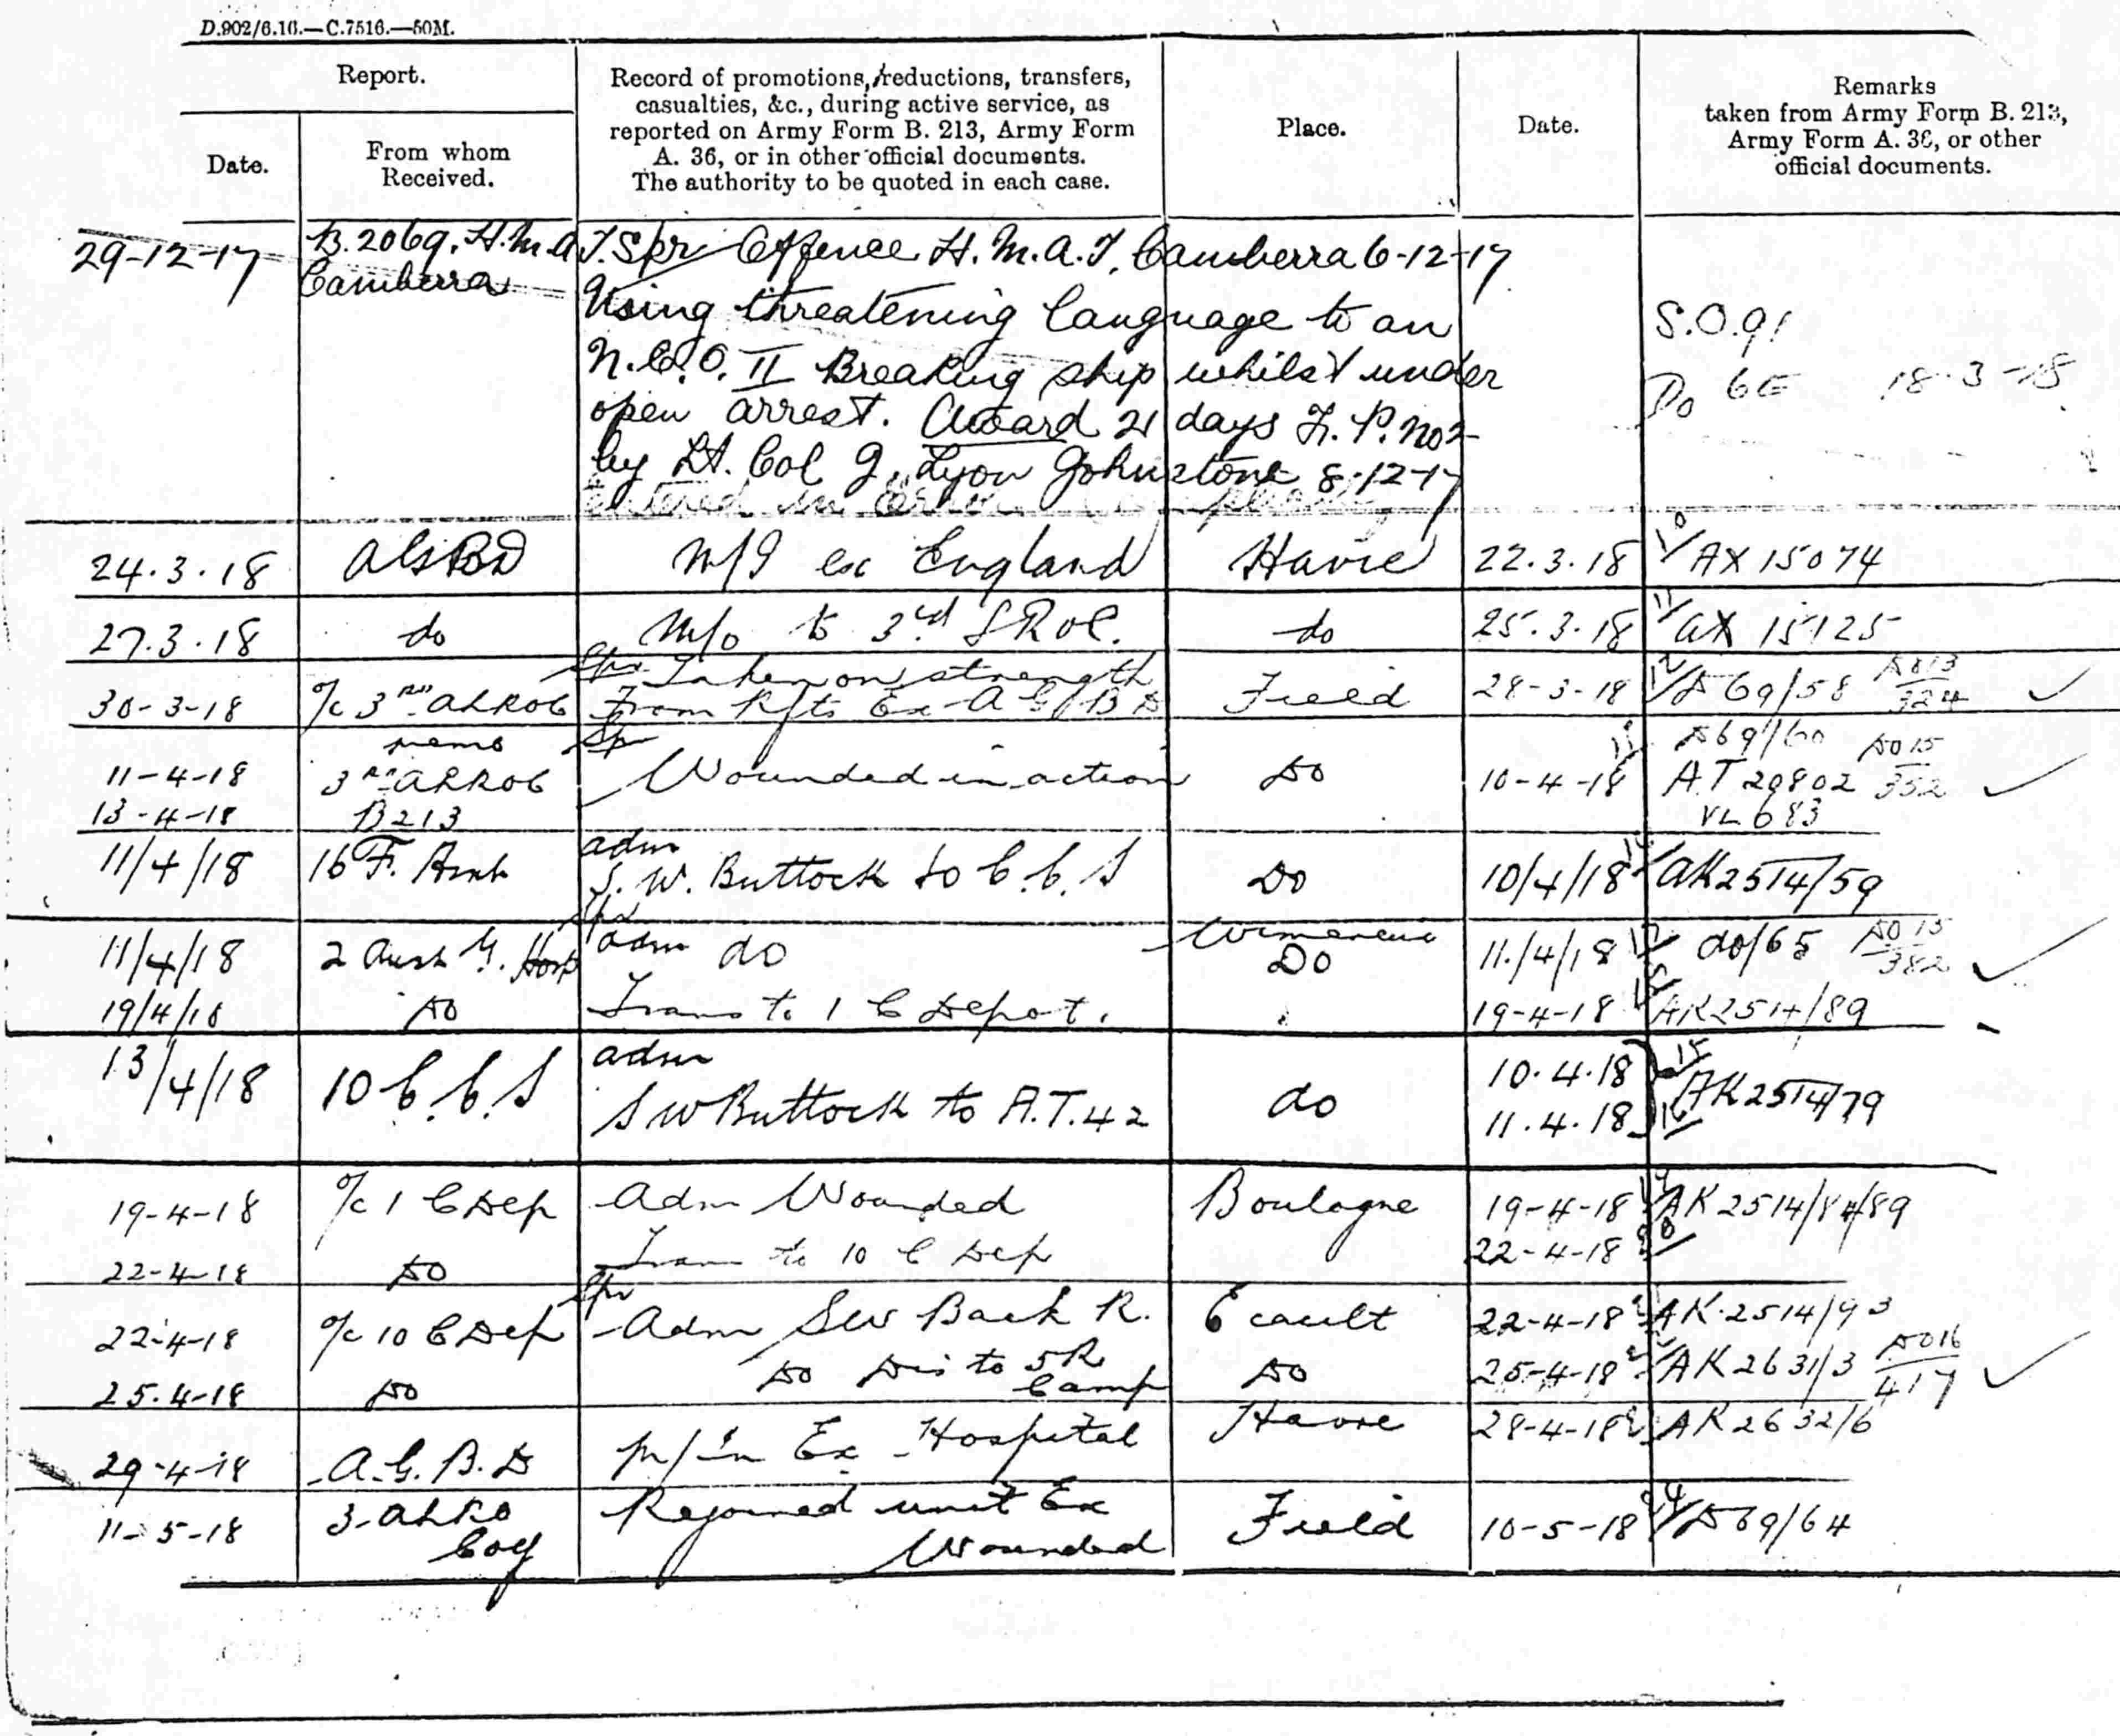 D.902/6.16.—C.7516.—50M.
Report.
Date.
From whom
Received.
Record of promotions, reductions, transfers,
casualties, &c., during active service, as
reported on Army Form B. 213, Army Form
A. 36, or in other official documents.
The authority to be quoted in each case.
Place.
Date.
Remarks
taken from Army Form B. 213,
Army Form A. 36, or other
official documents.
29-12-17 B.2069. H.M.A.T. Spr Offence H.M.A.T. Canberra 6-12-17
Canberra Using threatening language to an
S.O.91
N.C.O. II Breaking ship whilst under
Do 6E 18-3-18
open arrest. Award 21 days F.P. No 2
by Lt. Col G. Lyon Johnstone 8-12-17
entered in error
24.3.18 AGBD M/I ex England Havre 22.3.18 AX 15074
27.3.18 do M/o to 3rd LROC. do 25.3.18 AX 15125
Spr Taken on strength
30-3-18 O/C 3rd ALROC From R/fts Ex A G B D Field 28-3-18 D69/58 DO13/324
Spr
11-4-18 3rd ALROC Wounded in action Do 10-4-18 D69/60 DO15/382
A.T 20802
13-4-18 B213 VL 683
11/4/18 16 F. Amb adm
S.W. Buttock to C.C.S Do 10/4/18 AK2514/59
Spr
11/4/18 2 Aust G. Hosp adm do Wimereux Do 11/4/18 do/65 DO15/382
19/4/18 Do Trans to 1 C Depot. 19-4-18 AK2514/89
13/4/18 10 C.C.S adm
S W Buttock to A.T.42 do 10.4.18
11.4.18 AK2514/79
19-4-18 O/C 1 C Dep Adm Wounded Boulogne 19-4-18 AK 2514/84/89
22-4-18 Do Trans to 10 C Dep 22-4-18
Spr
22-4-18 O/C 10 C Dep Adm SW Back R. Ecault 22-4-18 AK 2514/93
25.4-18 Do Do Dis to 5R Camp Do 25-4-18 AK 2631/3 DO16/417
29-4-18 A.G.B.D M/in Ex Hospital Havre 28-4-18 AK 2632/6
11-5-18 3-ALRO Coy Rejoined unit Ex
Wounded Field 10-5-18 D69/64